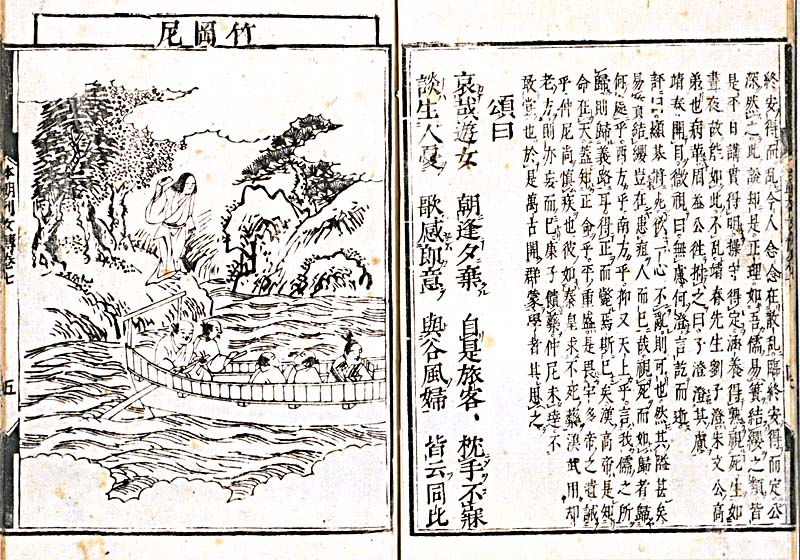 終安得而乱令人念念在散乱臨終安得而定公
深然之此説却是正理如吾儒易簀結纓之類皆
是平日講貫得明操守得定涵養得熟視死生如
晝夜故能如此不乱靖春先生劉子澄朱文公高
弟也病革周益公往拊之曰子澄澄其慮
靖春開目微視曰無慮何澄言訖而逝
評曰顯基將死伏一心不亂則可也然其隘甚矣
易簀結纓豈在人而已哉視死而如歸者歸
何處乎西方乎南方乎抑又天上乎言我儒之所
歸則歸義路耳得正而斃焉斯已矣漢高帝是知
命在天蓋知正命乎平重盛是畏宇多帝之遺誡
乎仲尼尚慎疾也彼如秦皇求不死藥漢武用却
老方則亦妄而已康子饋藥仲尼未達不
敢嘗也於是萬古開群蒙學者其思之
頌曰
哀哉遊女 朝逢夕棄 自是旅客 枕手不寐
談生人憂 歌感印意 與谷風婦 皆云同此
竹岡尼
本朝列女傳卷七 五